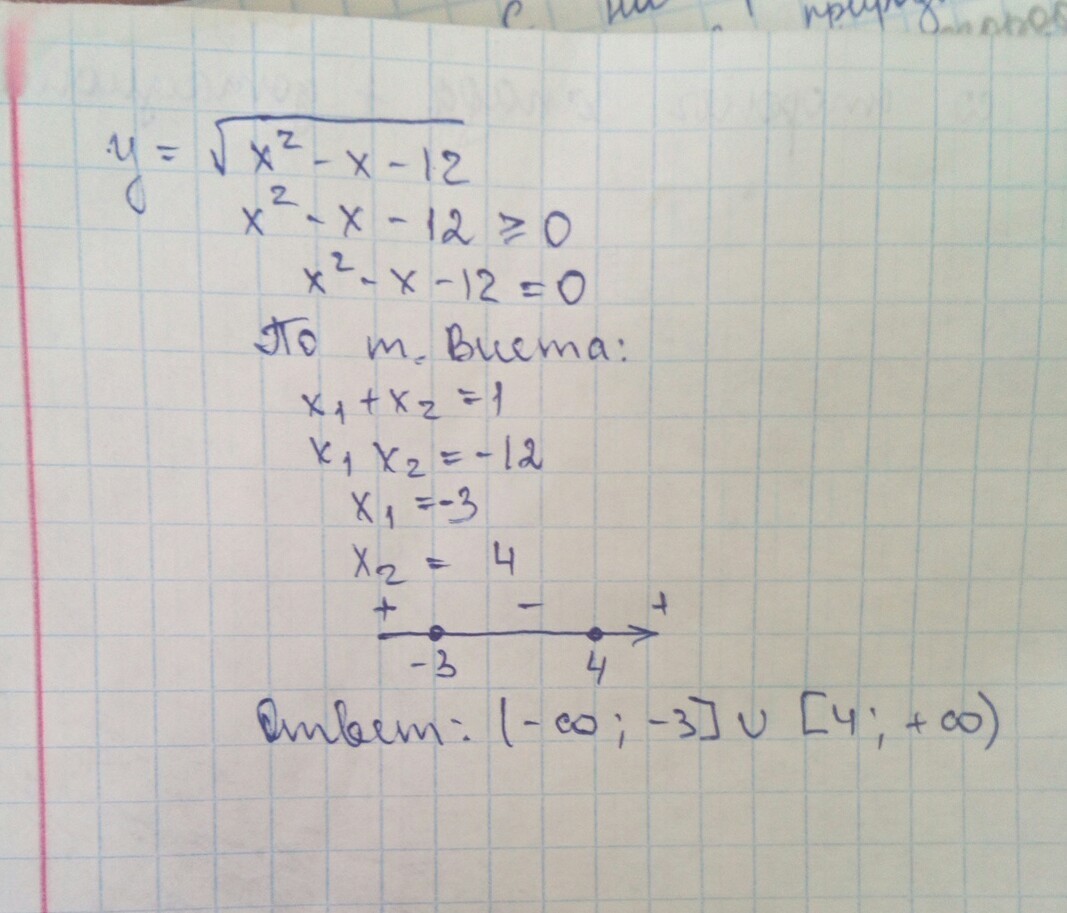 y = √x² - x - 12
x² - x - 12 ≥ 0
x² - x - 12 = 0
По т. Виета:
x₁ + x₂ = 1
x₁ x₂ = -12
x₁ = -3
x₂ = 4
+ - +
-3 4
Ответ: (-∞; -3] ∪ [4; +∞)